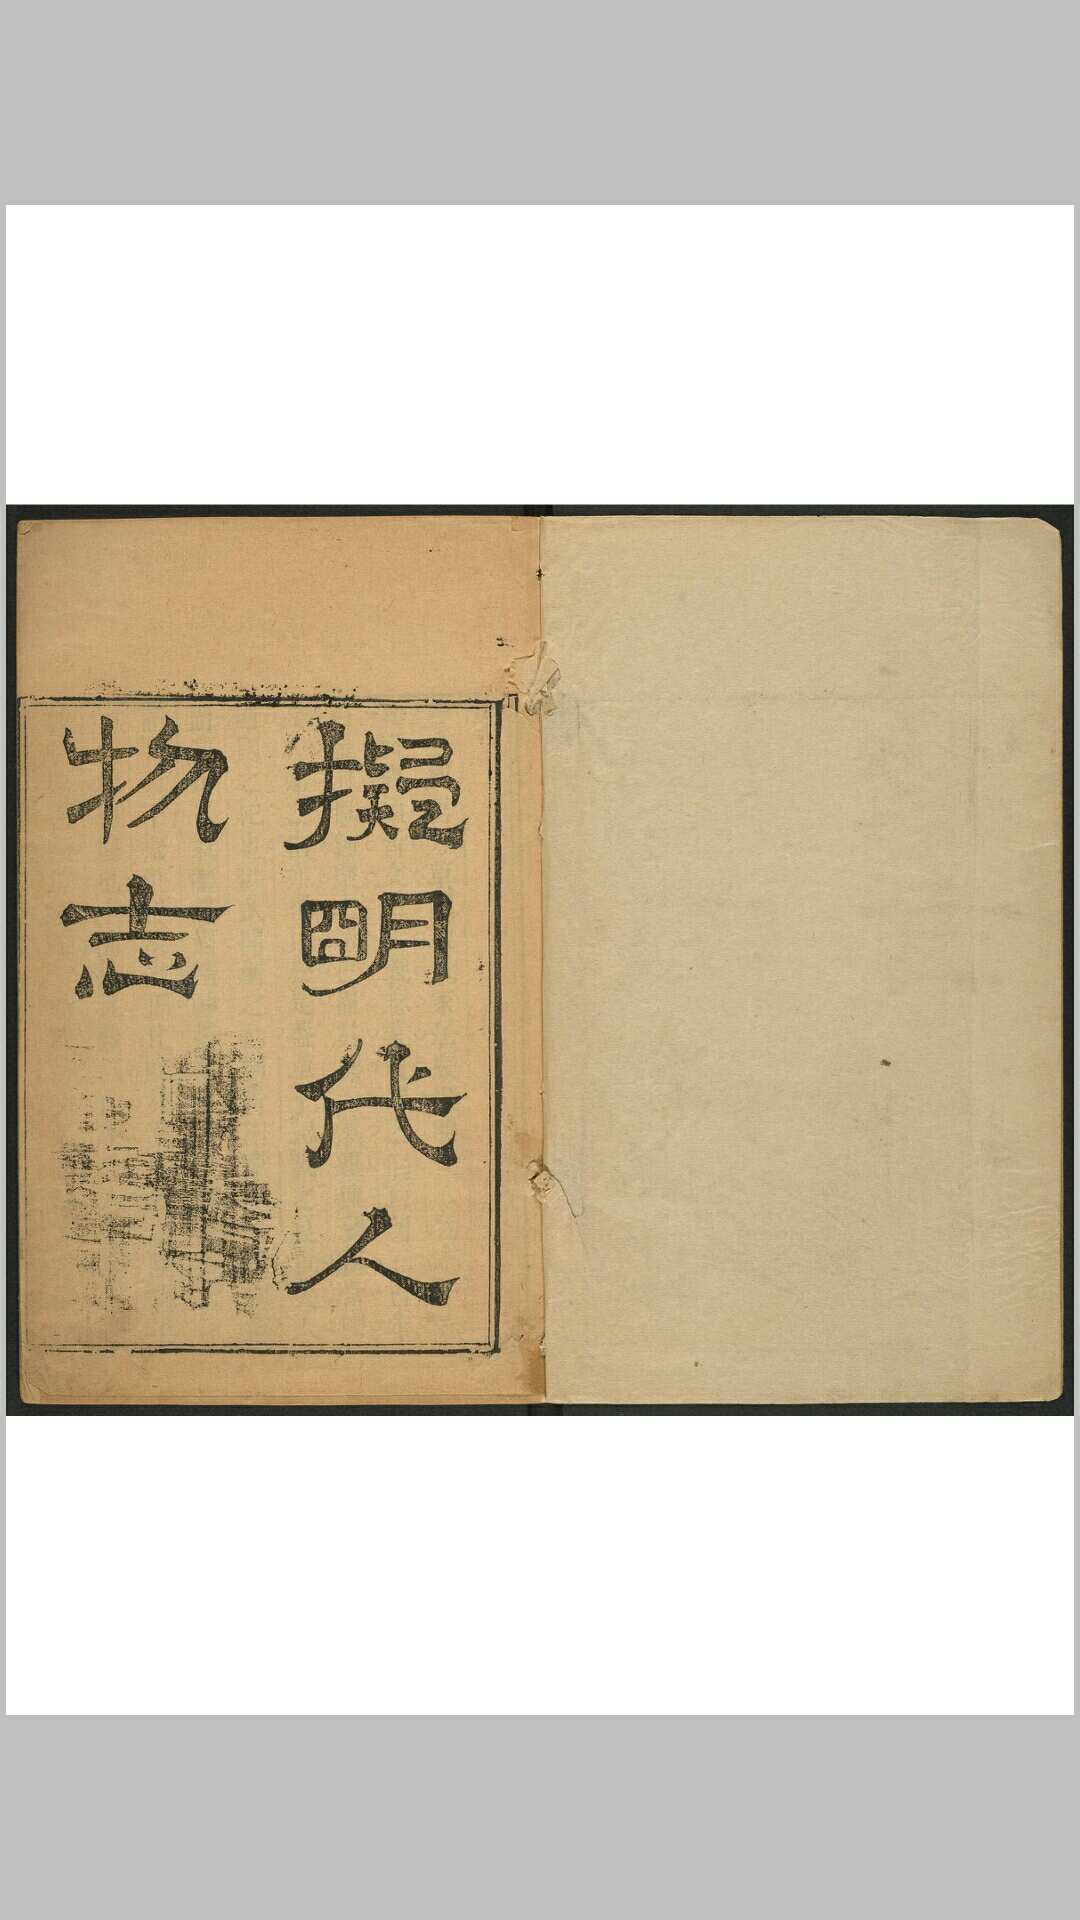 擬明代人
物志